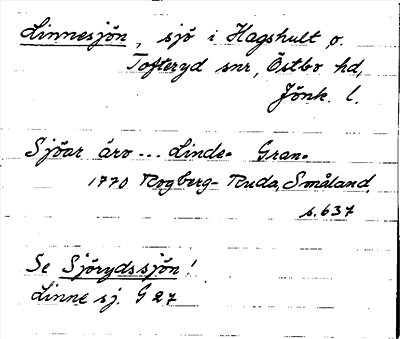 Linnesjön, sjö i Hagshult o.
Tofteryd snr, Östbo hd,
Jönk. l.
Sjöar äro... Linde= Gran=
1770 Rogberg-Ruda, Småland,
s. 637
Se Sjörydssjön!
Linne sj. G 27